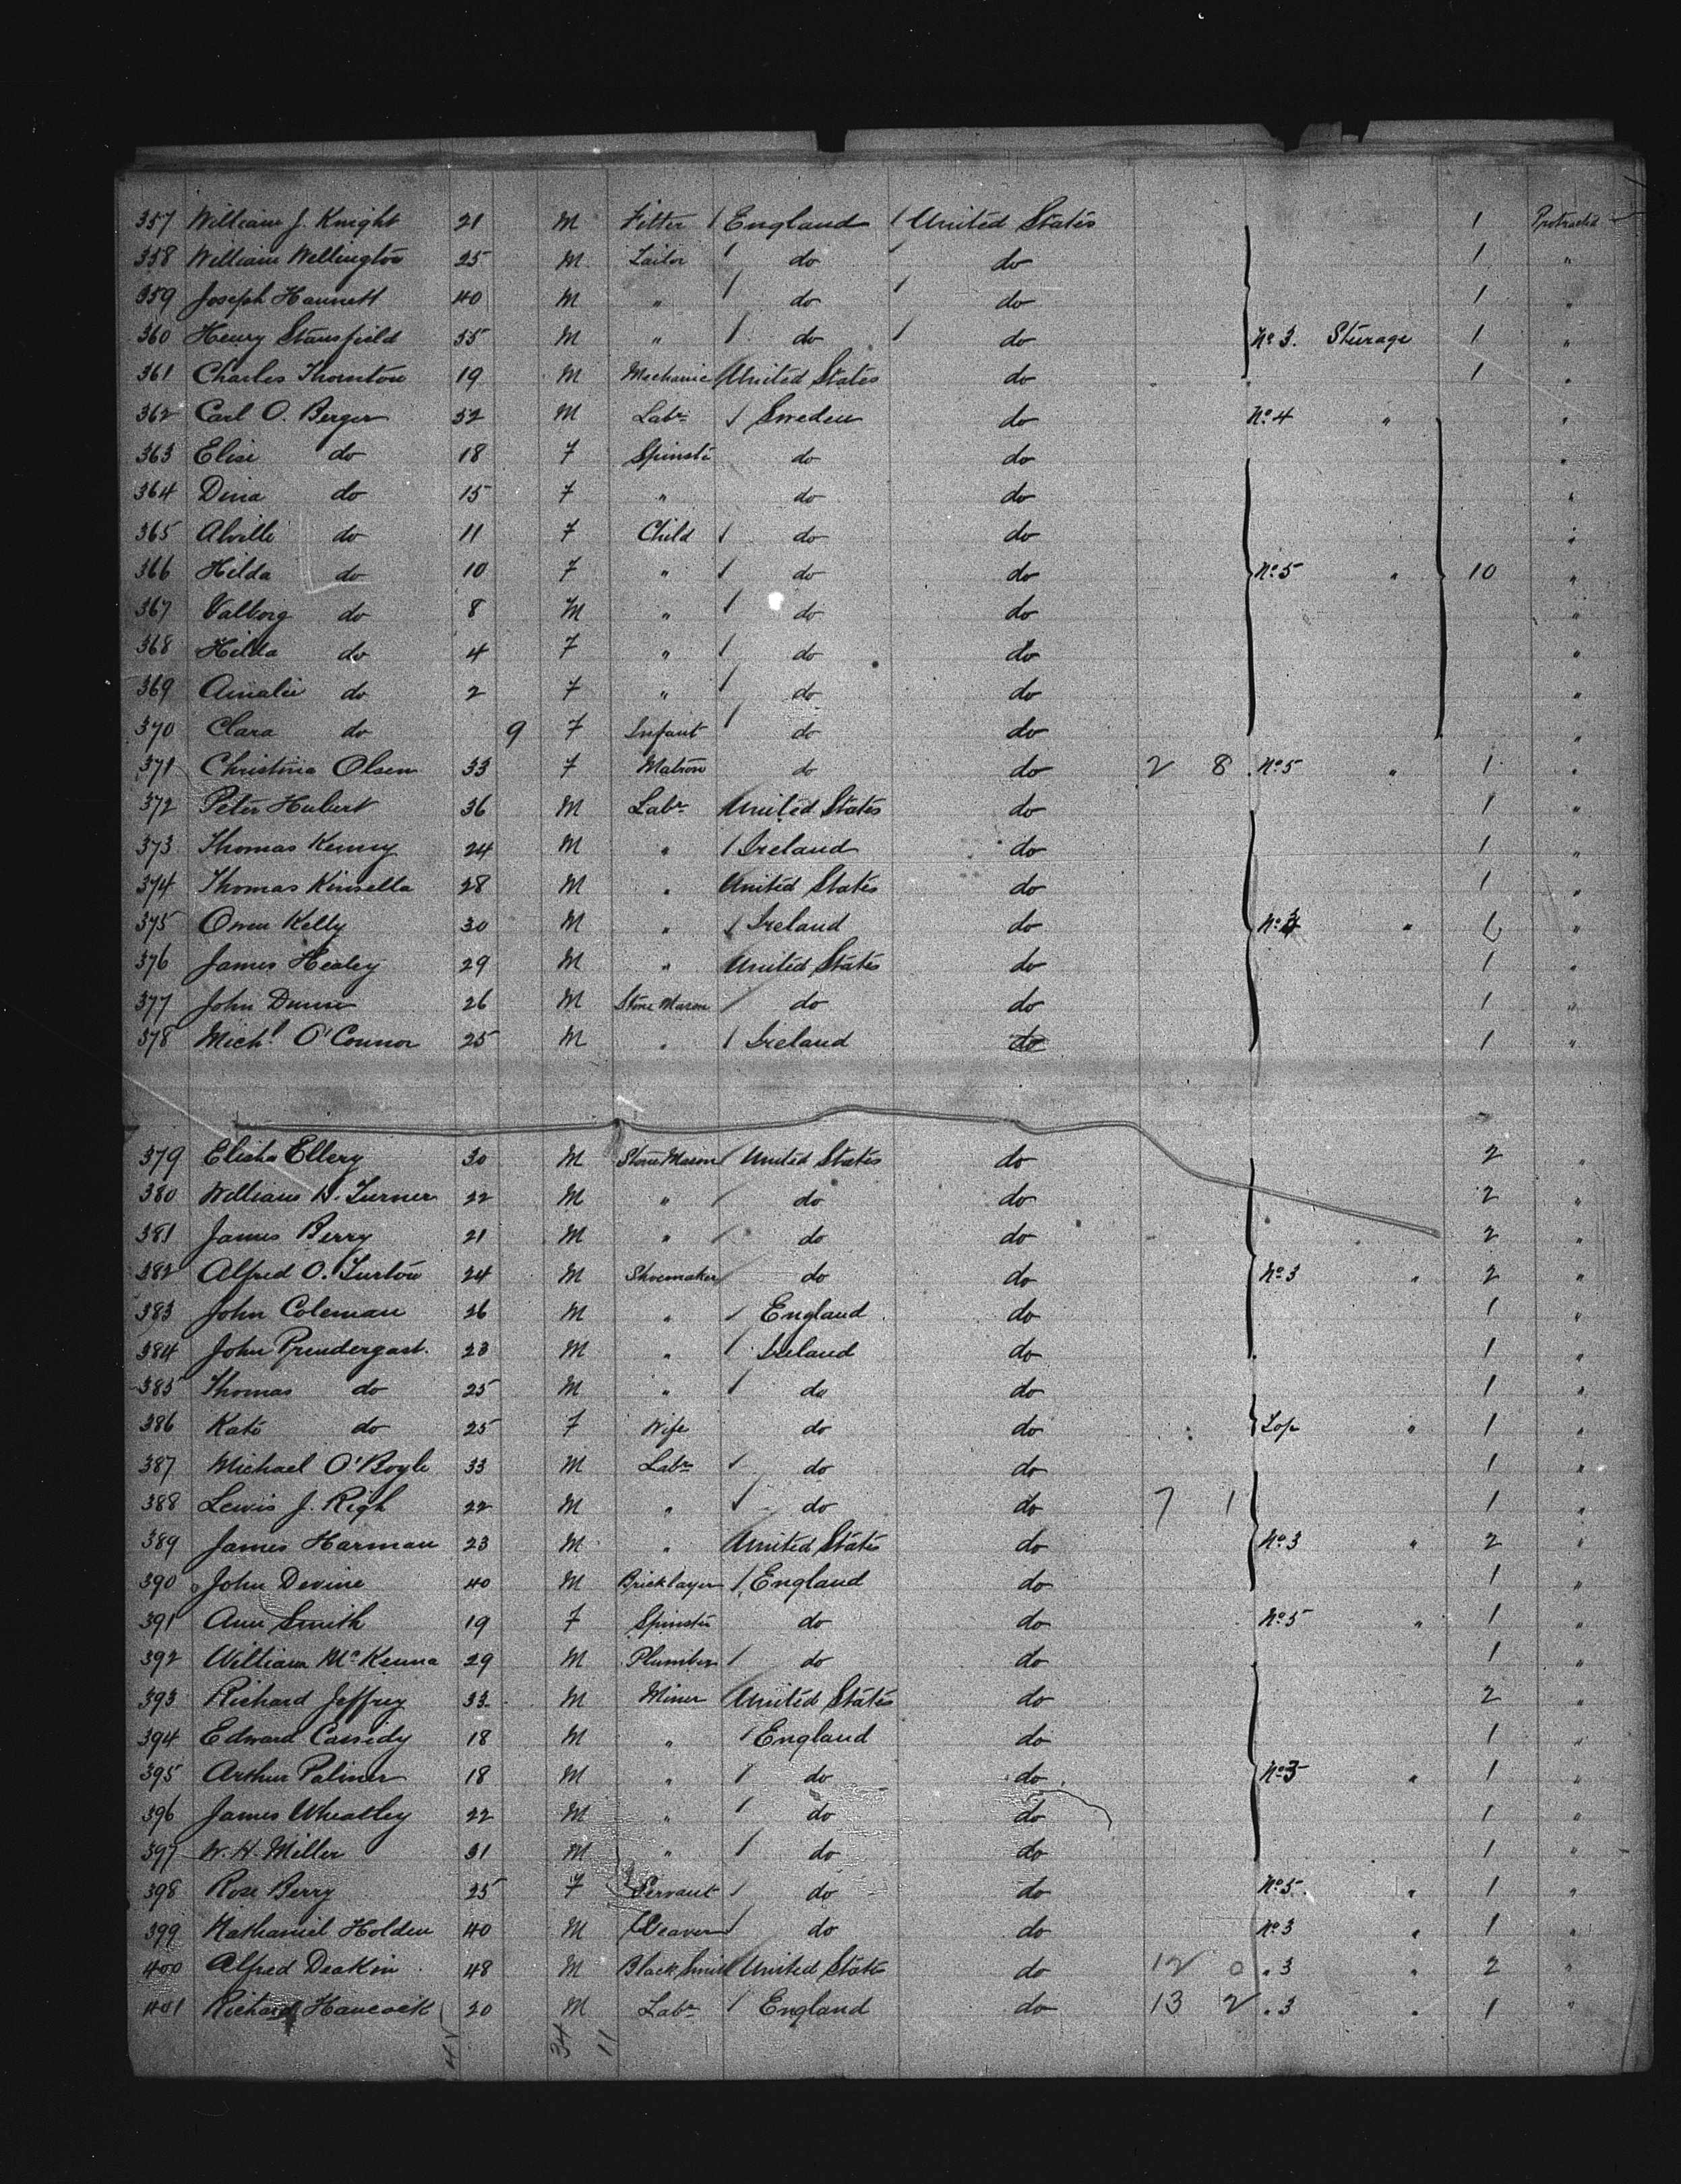 357 William J. Knight 21 M Fitter / England / United States 1 Protracted
358 William Wellington 25 M Tailor / do / do 1 "
359 Joseph Hannett 40 M " / do / do 1 "
360 Henry Stansfield 35 M " / do / do No 3. Sturage 1 "
361 Charles Thornton 19 M Mechanic United States do 1 "
362 Carl O. Berger 52 M Labr / Sweden do No 4 " "
363 Elise do 18 F Spinstr do do "
364 Dina do 15 F " do do "
365 Alville do 11 F Child / do do "
366 Hilda do 10 F " / do do No 5 " 10 "
367 Valborg do 8 M " / do do "
368 Hilda do 4 F " / do do "
369 Amalie do 2 F " / do do "
370 Clara do 9 F Infant / do do "
371 Christina Olsen 33 F Matron do do 2 8 No 5 " 1 "
372 Peter Hubert 36 M Labr United States do 1 "
373 Thomas Kenny 24 M " / Ireland do 1 "
374 Thomas Kinsella 28 M " United States do 1 "
375 Owen Kelly 30 M " / Ireland do No 3 " "
376 James Healey 29 M " United States do 1 "
377 John Dunne 26 M Stone Mason / do do 1 "
378 Michl O'Connor 25 M " / Ireland do 1 "
379 Elisha Ellery 30 M Stone Mason / United States do 2 "
380 William H. Turner 22 M " / do do 2 "
381 James Berry 21 M " / do do 2 "
382 Alfred O. Turton 24 M Shoemaker / do do No 3 " 2 "
383 John Coleman 26 M " / England do 1 "
384 John Prendergast. 23 M " / Ireland do 1 "
385 Thomas do 25 M " / do do 1 "
386 Kate do 25 F Wife do do Top " 1 "
387 Michael O'Boyle 33 M Labr / do do 1 "
388 Lewis J. Righ 22 M " / do do 7 1 1 "
389 James Harman 23 M " United States do No 3 " 2 "
390 John Devine 40 M Bricklayer / England do 1 "
391 Ann Smith 19 F Spinstr do do No 5 " 1 "
392 William McKenna 29 M Plumber / do do 1 "
393 Richard Jeffrey 33 M Miner United States do 2 "
394 Edward Cassidy 18 M " / England do 1 "
395 Arthur Palmer 18 M " / do do No 3 " 1 "
396 James Wheatley 22 M " / do do 1 "
397 W. H. Miller 31 M " / do do 1 "
398 Rose Berry 25 F Servant / do do No 5 " 1 "
399 Nathaniel Holden 40 M Weaver / do do No 3 " 1 "
400 Alfred Deakin 48 M Black Smith United States do 12 0 " 3 " 2 "
401 Richard Hancock 20 M Labr / England do 13 2 " 3 " 1 "
34 11